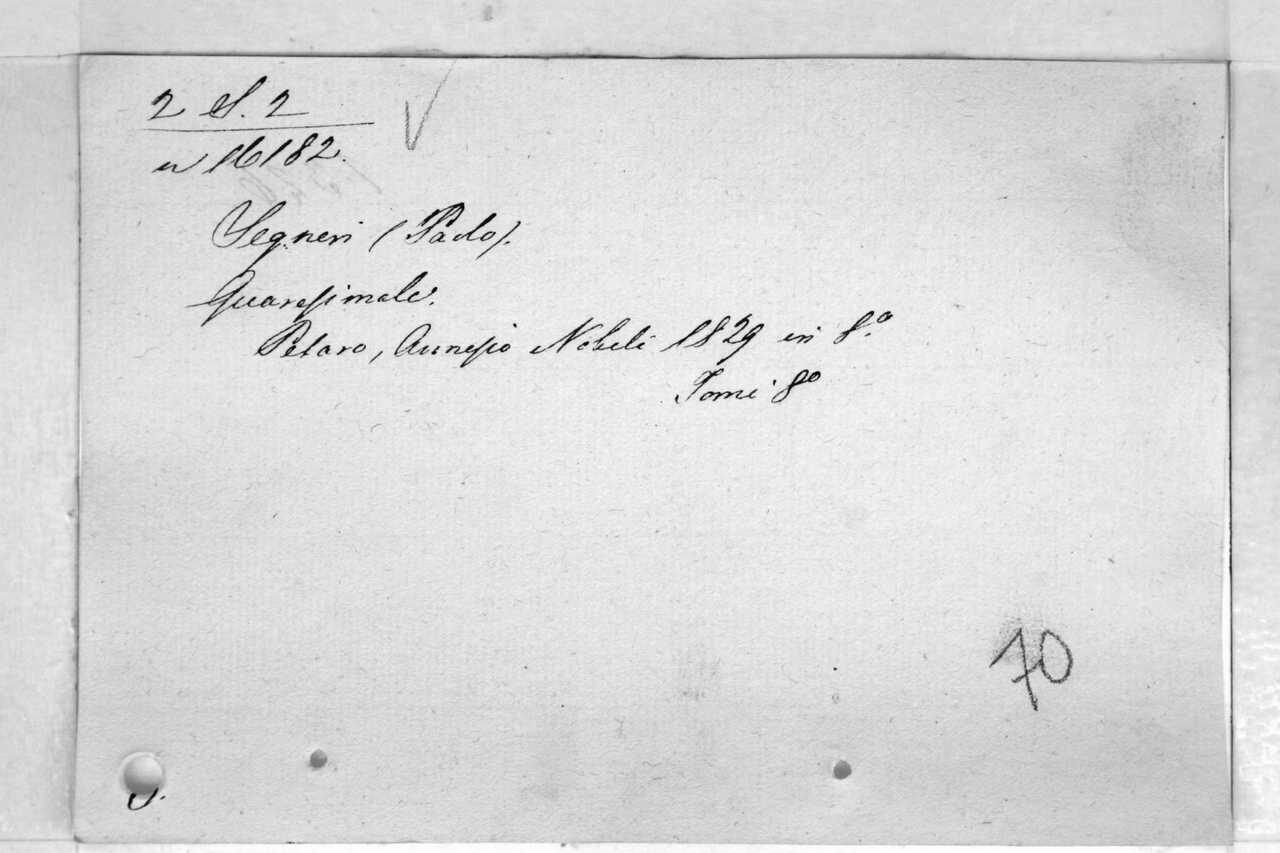 2 S. 2
in 16182.
Segneri (Paolo).
Quaresimale.
Pesaro, Annesio Nobili 1829 in 8.º
Tomi 8º
70